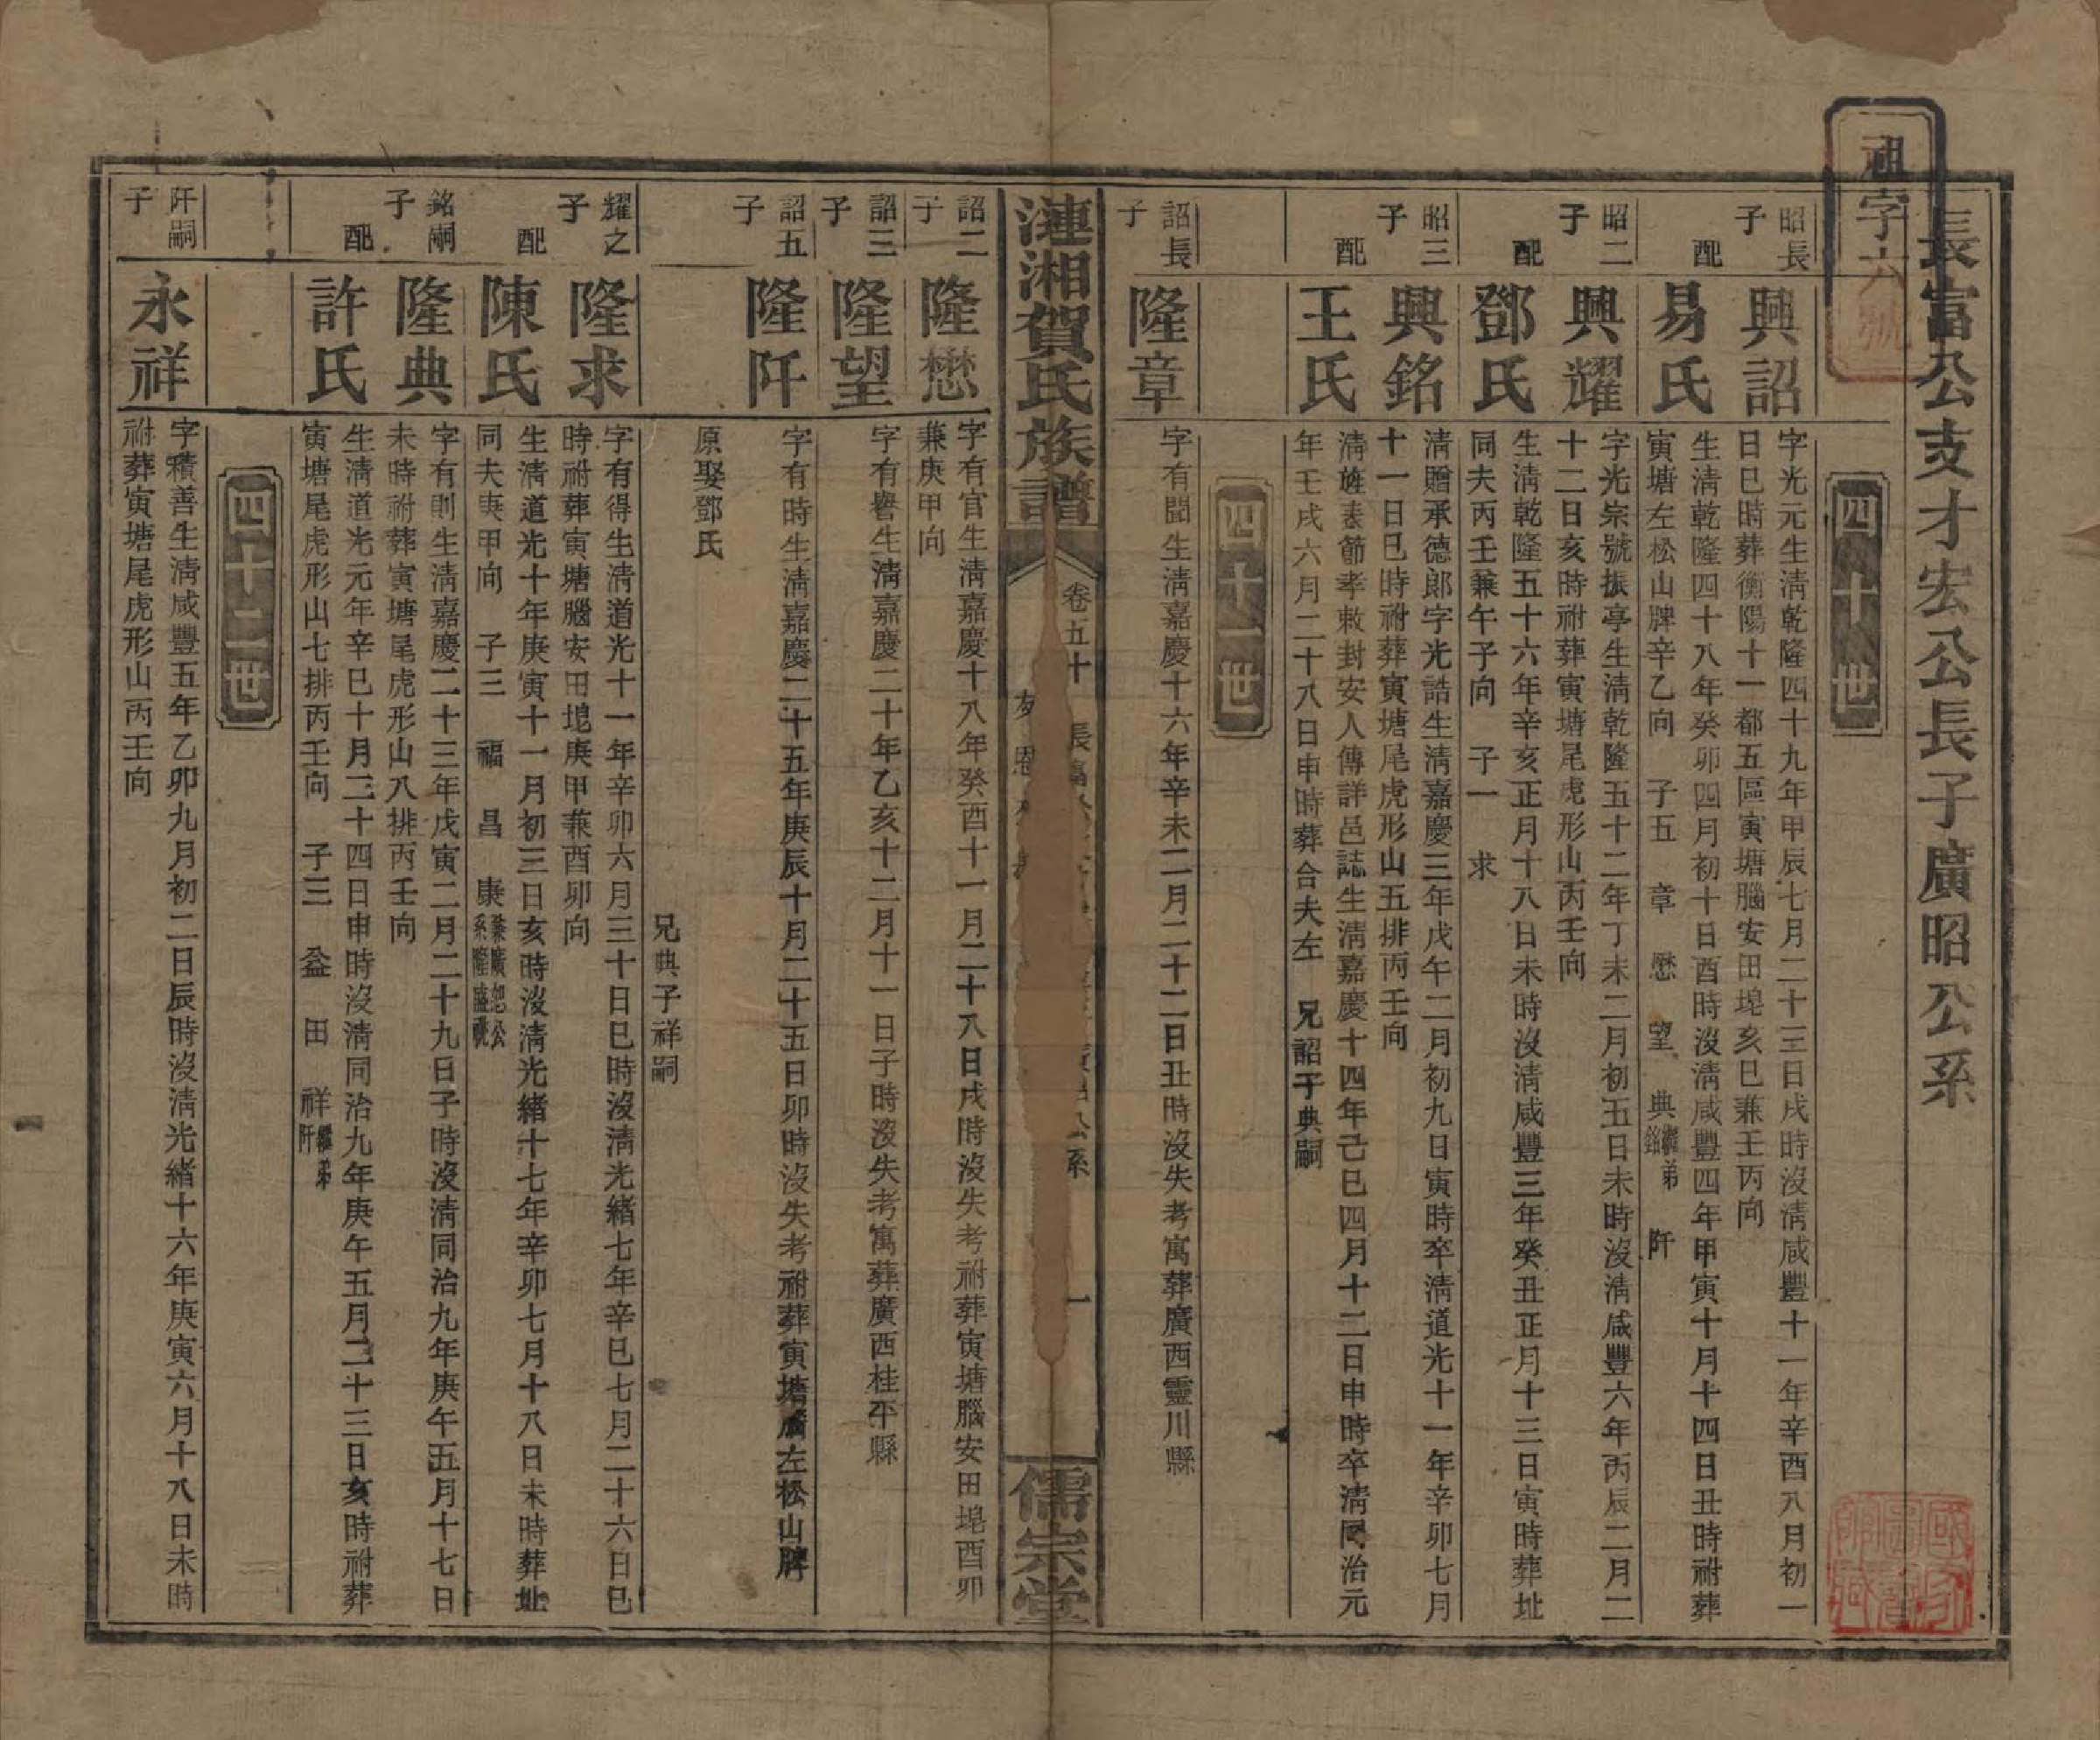 長富公支才宏公長子廣昭公系
祖字六號
四十世
昭長子
興詔
字光元生淸乾隆四十九年甲辰七月二十三日戌時沒淸咸豐十一年辛酉八月初一
日巳時葬衡陽十一都五區寅塘腦安田堤亥巳兼壬丙向
配
易氏
生淸乾隆四十八年癸卯四月初十日酉時沒淸咸豐四年甲寅十月十四日丑時祔葬
寅塘左松山牌辛乙向 子五 章 懋 望 典繼弟銘 阡
昭二子
興耀
字光宗號振亭生淸乾隆五十二年丁未二月初五日未時沒淸咸豐六年丙辰二月二
十二日亥時祔葬寅塘尾虎形山丙壬向
配
鄧氏
生淸乾隆五十六年辛亥正月十八日未時沒淸咸豐三年癸丑正月十三日寅時葬址
同夫丙壬兼午子向 子一 求
昭三子
興銘
淸贈承德郎字光誥生淸嘉慶三年戊午二月初九日寅時卒淸道光十一年辛卯七月
十一日巳時祔葬寅塘尾虎形山五排丙壬向
配
王氏
淸旌表節孝敕封安人傳詳邑誌生淸嘉慶十四年己巳四月十二日申時卒淸同治元
年壬戌六月二十八日申時葬合夫左 兄詔子典嗣
四十一世
詔長子
隆章
字有聞生淸嘉慶十六年辛未二月二十二日丑時沒失考寓葬廣西靈川縣
漣湘賀氏族譜
卷五十
長富
公系
一
儒宗堂
詔二子
隆懋
字有官生淸嘉慶十八年癸酉十一月二十八日戌時沒失考祔葬寅塘腦安田堤酉卯
兼庚甲向
詔三子
隆望
字有譽生淸嘉慶二十年乙亥十二月十一日子時沒失考寓葬廣西桂平縣
詔五子
隆阡
字有時生淸嘉慶二十五年庚辰十月二十五日卯時沒失考祔葬寅塘腐左松山牌
原娶鄧氏
兄典子祥嗣
耀之子
隆求
字有得生淸道光十一年辛卯六月三十日巳時沒淸光緒七年辛巳七月二十六日巳
時祔葬寅塘腦安田堤庚甲兼酉卯向
配
陳氏
生淸道光十年庚寅十一月初三日亥時沒淸光緒十七年辛卯七月十八日未時葬址
同夫庚甲向 子三 福 昌 康兼廣恕公系隆盛祧
銘嗣子
隆典
字有則生淸嘉慶二十三年戊寅二月二十九日子時沒淸同治九年庚午五月十七日
未時祔葬寅塘尾虎形山八排丙壬向
配
許氏
生淸道光元年辛巳十月二十四日申時沒淸同治九年庚午五月二十三日亥時祔葬
寅塘尾虎形山七排丙壬向 子三 益 田 祥繼弟阡
四十二世
阡嗣子
永祥
字積善生淸咸豐五年乙卯九月初二日辰時沒淸光緒十六年庚寅六月十八日未時
祔葬寅塘尾虎形山丙壬向